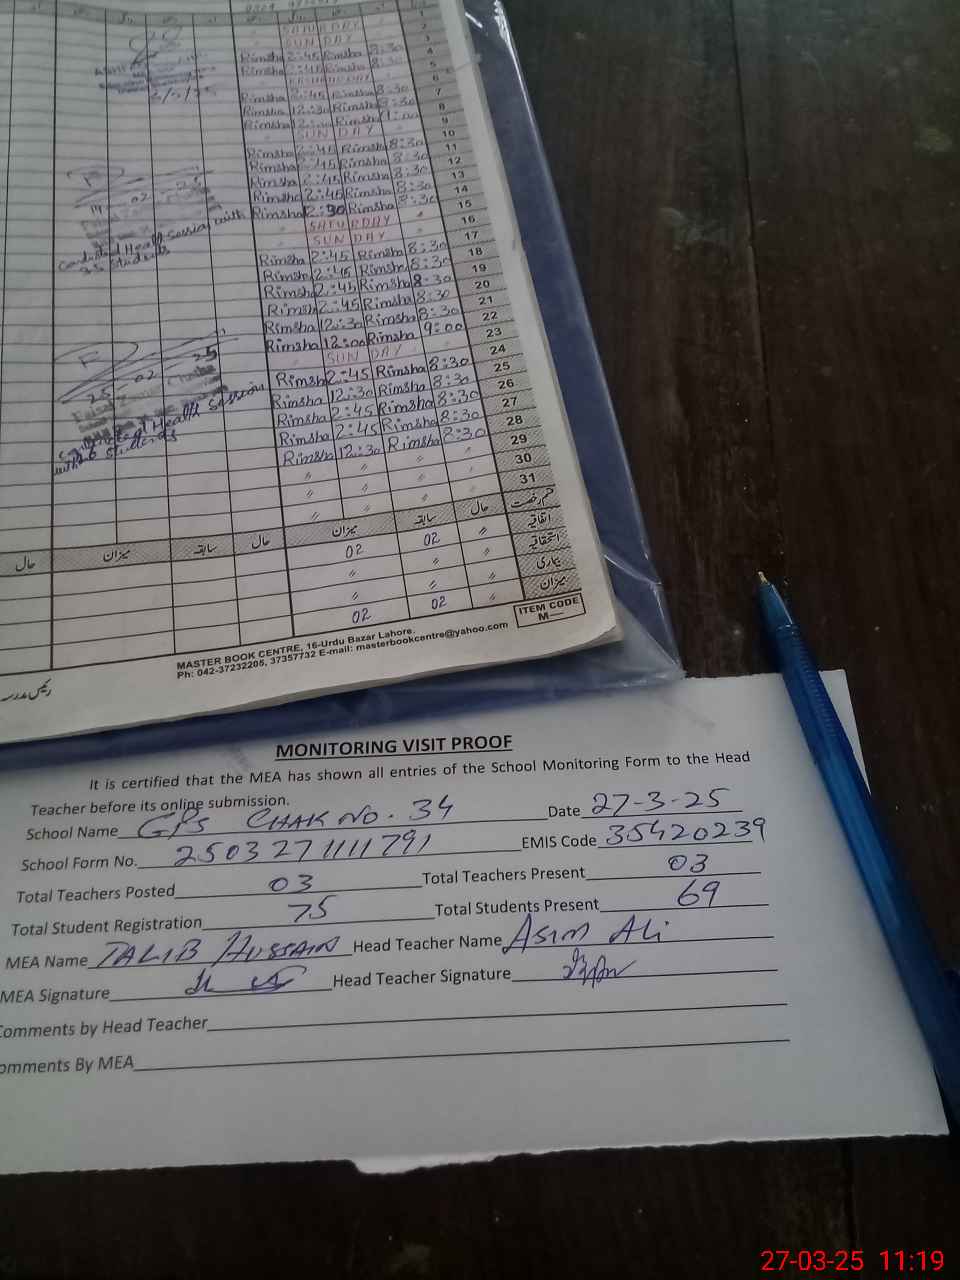 SATURDAY 2
SUN DAY 3
Rimsha 2:45 Rimsha 8:30 4
Rimsha 2:45 Rimsha 8:30 5
6
Rimsha 2:45 Rimsha 8:30 7
Rimsha 12:30 Rimsha 8:30 8
Rimsha Rimsha 9:00 9
SUN DAY 10
Rimsha 2:45 Rimsha 8:30 11
Rimsha 2:45 Rimsha 8:30 12
Rimsha 2:45 Rimsha 8:30 13
Rimsha 2:45 Rimsha 8:30 14
Rimsha Rimsha 8:30 15
SATURDAY 16
SUN DAY 17
14 02 25
Conducted Health Session with
35 Students
Rimsha 2:45 Rimsha 8:30 18
Rimsha 2:45 Rimsha 8:30 19
Rimsha 2:45 Rimsha 8:30 20
Rimsha 2:45 Rimsha 8:30 21
Rimsha 12:30 Rimsha 8:30 22
Rimsha 12:00 Rimsha 9:00 23
SUN DAY 24
Rimsha 2:45 Rimsha 8:30 25
Rimsha 12:30 Rimsha 8:30 26
Rimsha 2:45 Rimsha 8:30 27
Rimsha 2:45 Rimsha 8:30 28
Rimsha 12:30 Rimsha 8:30 29
25 02 25
Health Session
Students
30
31
حال میزان سابقہ حال میزان سابقہ حال قسم رخصت
02 02 〃 اتفاقیہ
〃 〃 〃 استحقاقیہ
〃 〃 〃 بیماری
02 02 〃 میزان
ITEM CODE
M—
MASTER BOOK CENTRE, 16-Urdu Bazar Lahore.
Ph: 042-37232205, 37357732 E-mail: masterbookcentre@yahoo.com
رئیس مدرسہ
MONITORING VISIT PROOF
It is certified that the MEA has shown all entries of the School Monitoring Form to the Head
Teacher before its online submission.
School Name GPS CHAK NO. 34 Date 27-3-25
School Form No. 2503271111791 EMIS Code 35420239
Total Teachers Posted 03 Total Teachers Present 03
Total Student Registration 75 Total Students Present 69
MEA Name TALIB HUSSAIN Head Teacher Name ASIM Ali
MEA Signature Head Teacher Signature
Comments by Head Teacher
omments By MEA
27-03-25 11:19